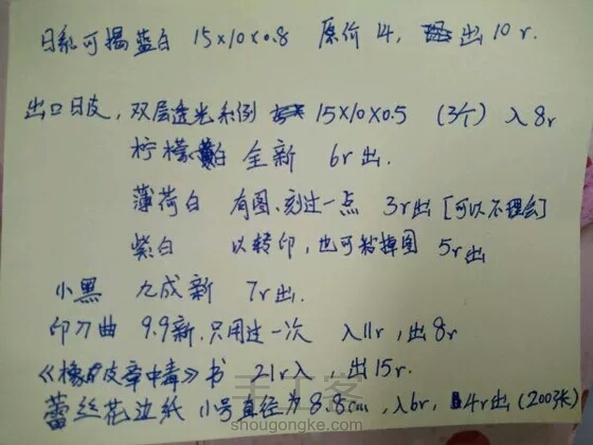 日系可揭蓝白 15×10×0.8 原价14, 出10r.
出口日皮, 双层透光系列 15×10×0.5 (3个) 入8r
柠檬白 全新 6r出.
薄荷白 有图、刻过一点 3r出 [可以不理会]
紫白 以转印,也可擦掉图 5r出
小黑 九成新 7r出.
印刀曲 9.9新,只用过一次 入11r,出8r
《橡皮章中毒》书 21r入,出15r.
蕾丝花边纸 小号直径为8.8cm,入6r, 4r出(200张)
手工客
shougongke.com